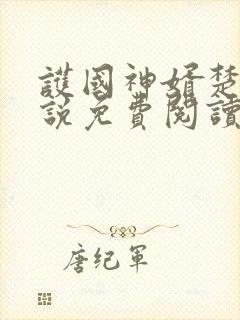 護國神婿楚
說免費閱讀
唐纪軍